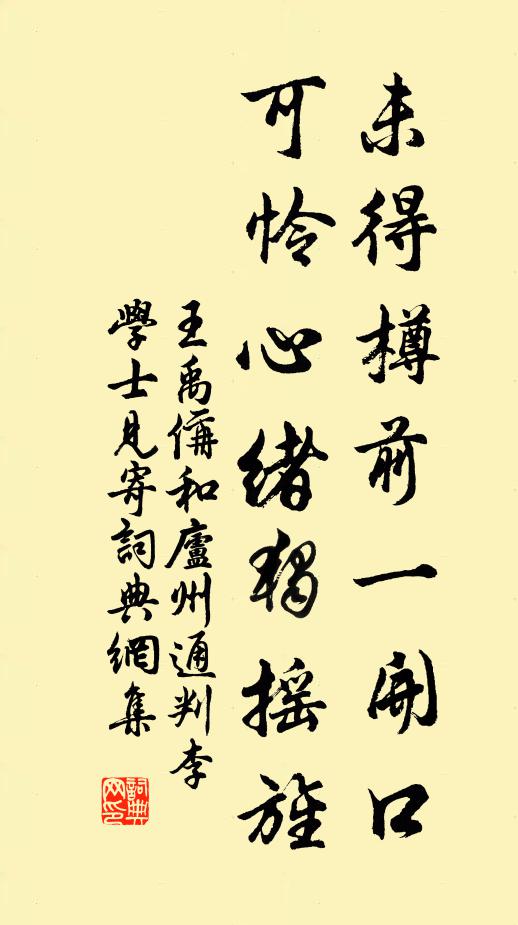 未得樽前一開口
可怜心緒獨搖旌
王禹偁和廬州通判李
學士見寄詞典網集
詞典網印